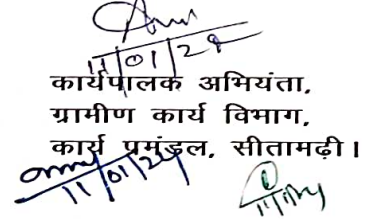 11/01/24
कार्यपालक अभियंता,
ग्रामीण कार्य विभाग,
कार्य प्रमंडल, सीतामढ़ी।
11/01/24